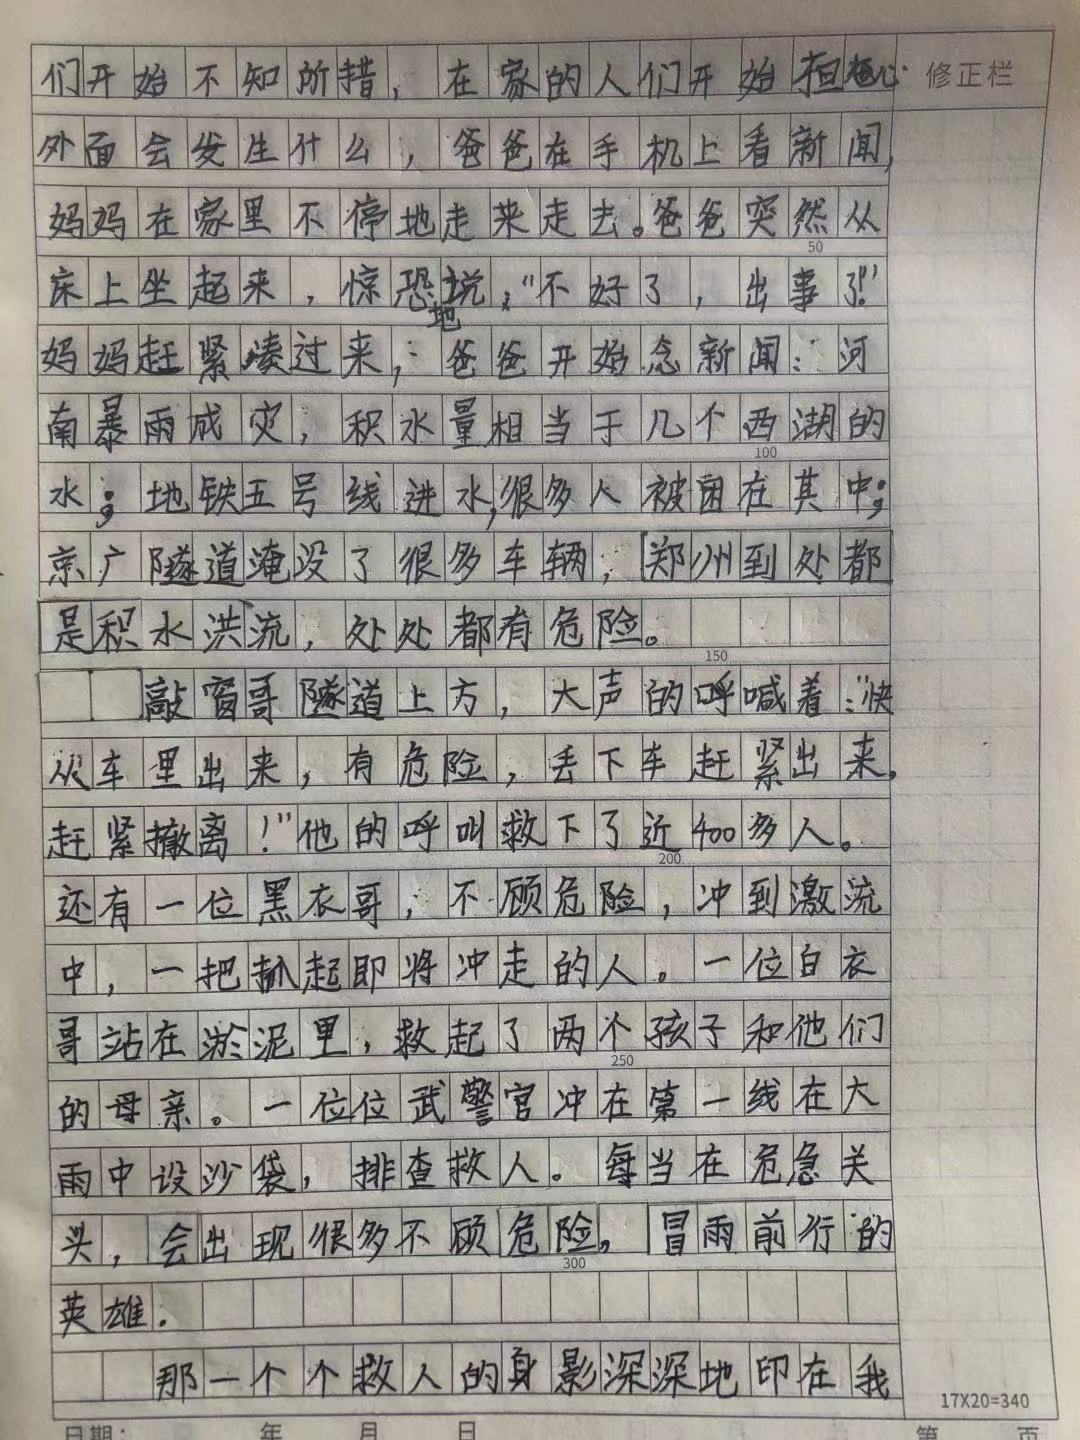 们开始不知所措，在家的人们开始担心
修正栏
外面会发生什么，爸爸在手机上看新闻，
妈妈在家里不停地走来走去。爸爸突然从
50
床上坐起来，惊恐地说：“不好了，出事了!”
妈妈赶紧凑过来，爸爸开始念新闻：河
南暴雨成灾，积水量相当于几个西湖的
100
水；地铁五号线进水，很多人被困在其中；
京广隧道淹没了很多车辆，郑州到处都
是积水洪流，处处都有危险。
150
敲窗哥隧道上方，大声的呼喊着：“快
从车里出来，有危险，丢下车赶紧出来，
赶紧撤离！”他的呼叫救下了近400多人。
200
还有一位黑衣哥，不顾危险，冲到激流
中，一把抓起即将冲走的人。一位白衣
哥站在淤泥里，救起了两个孩子和他们
250
的母亲。一位位武警官冲在第一线在大
雨中设沙袋，排查救人。每当在危急关
头，会出现很多不顾危险，冒雨前行的
300
英雄．
那一个个救人的身影深深地印在我
17X20=340
日期： 年 月 日 第 页